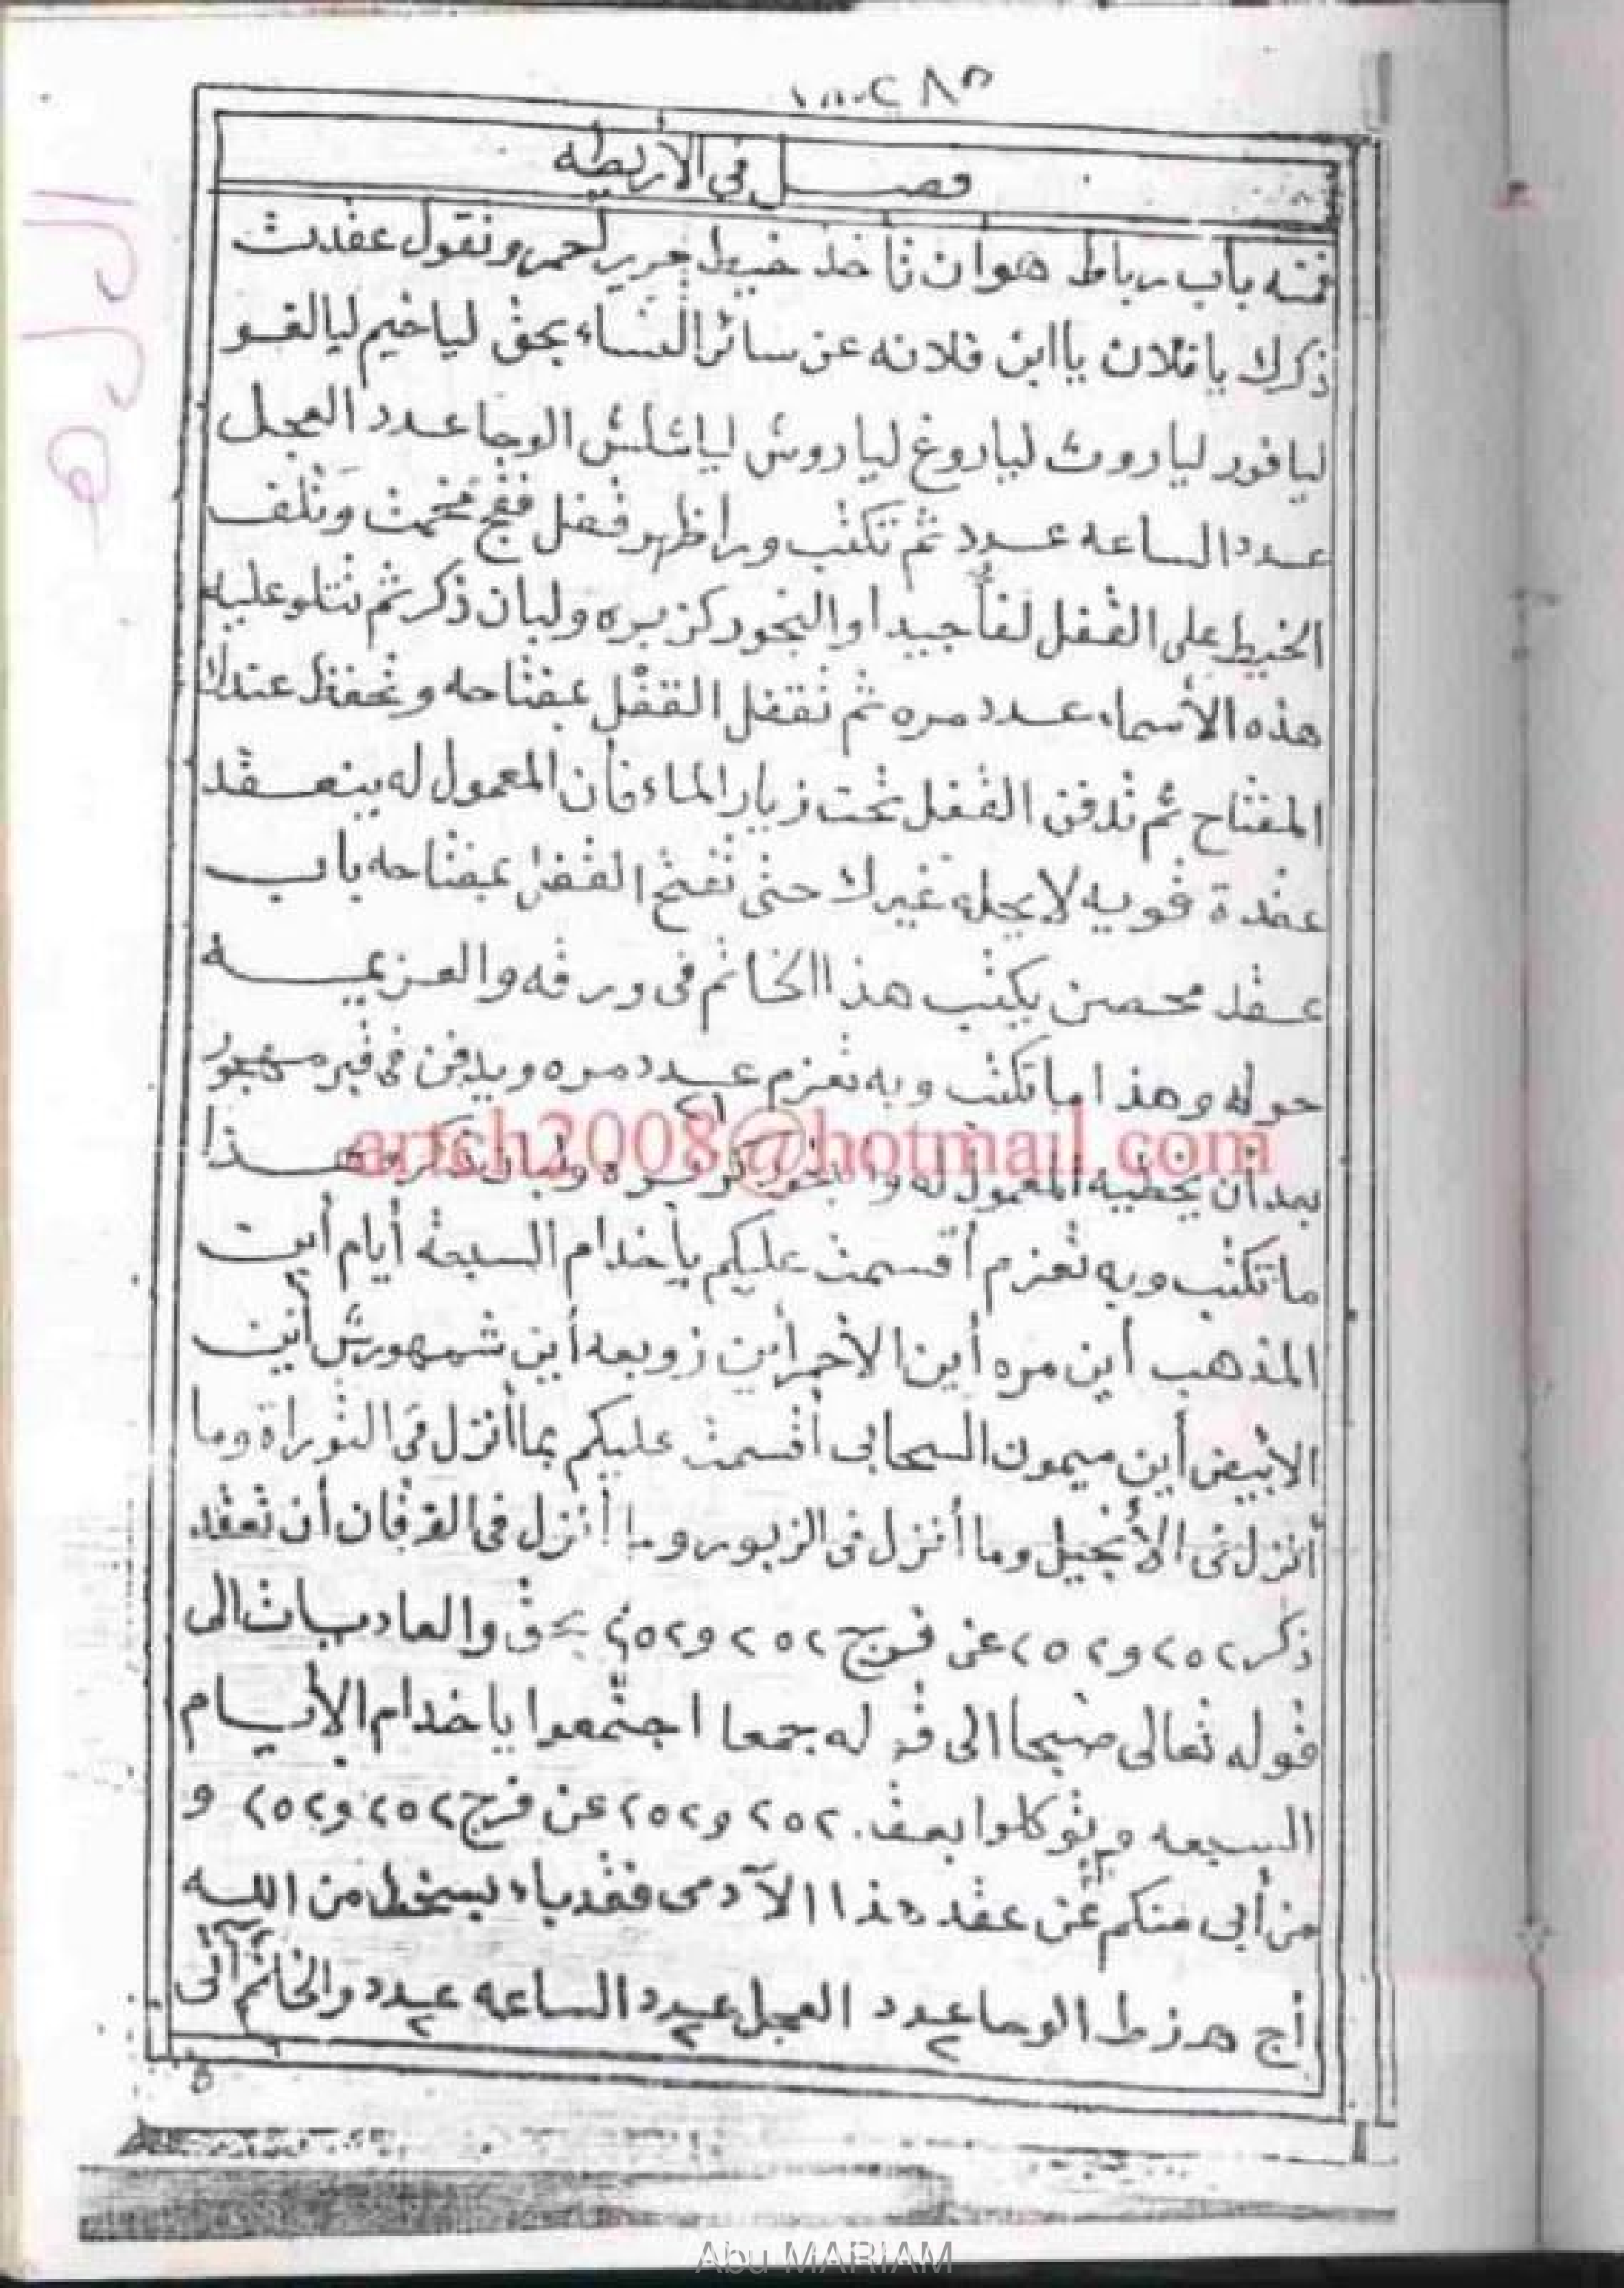 فصل في الأربطه
فمنه باب رباط هوان تاخذ خيط حرير احمر وتقول عقدت
ذكرك يا فلان يا ابن فلانه عن سائر النساء بحق لياخيم ليالغو
ليافور لياروث لياروغ لياروش لياشلش الوحا عدد العجل
عدد الساعه عدد ثم تكتب ورا ظهر قفل فقج مخمت وتلف
الخيط على القفل لفاً جيدا والبخور كزبره ولبان ذكر ثم تتلو عليه
هذه الأسماء عدد مره ثم تقفل القفل بمفتاحه وتحفظ عندك
المفتاح ثم تدفن القفل تحت زيار الماء فأن المعمول له ينعقد
عقدة قويه لا يحله غيرك حتى تفتح القفل بمفتاحه باب
عقد محصن يكتب هذا الخاتم فى ورقه والعزيمه
حوله وهذا ما تكتب وبه تعزم عدد ٢١ مره ويدفن فى قبر مهجور
artch2008@hotmail.com
بعد أن يخطيه المعمول له والبخور كزبره ولبان ذكر وهذا
ما تكتب وبه تعزم أقسمت عليكم ياخدام السبعة أيام أين
المذهب أين مره أين الأحمر أين زوبعه أين شمهورش أين
الأبيض أين ميمون السحابى أقسمت عليكم بما أنزل فى التوراة وما
أنزل فى الأنجيل وما أنزل فى الزبور وما أنزل فى الفرقان أن تعقد
ذكر ٢٥٢ و ٢٥٢ عن فرج ٢٥٢ و ٢٥٢ بحق والعاديات الى
قوله تعالى ضبحا الى قوله جمعا اجتمعوا ياخدام الأيام
السبعه وتوكلوا بعقد ٢٥٢ و ٢٥٢ عن فرج ٢٥٢ و ٢٥٢ و
من أبى منكم عن عقد هذا الآدمى فقد باء بسخط من الله
أج هزط الوحا عدد ٢ العجل عدد ٢ الساعه عدد ٢ والخاتم آتى
الله
Abu MARIAM